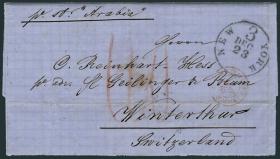 pr St. "Arabia"
NEW YORK
3
DEC
23
Herrn
C. Reinhart-Hess
pr adr. Geilinger & Blum
Winterthur
Switzerland